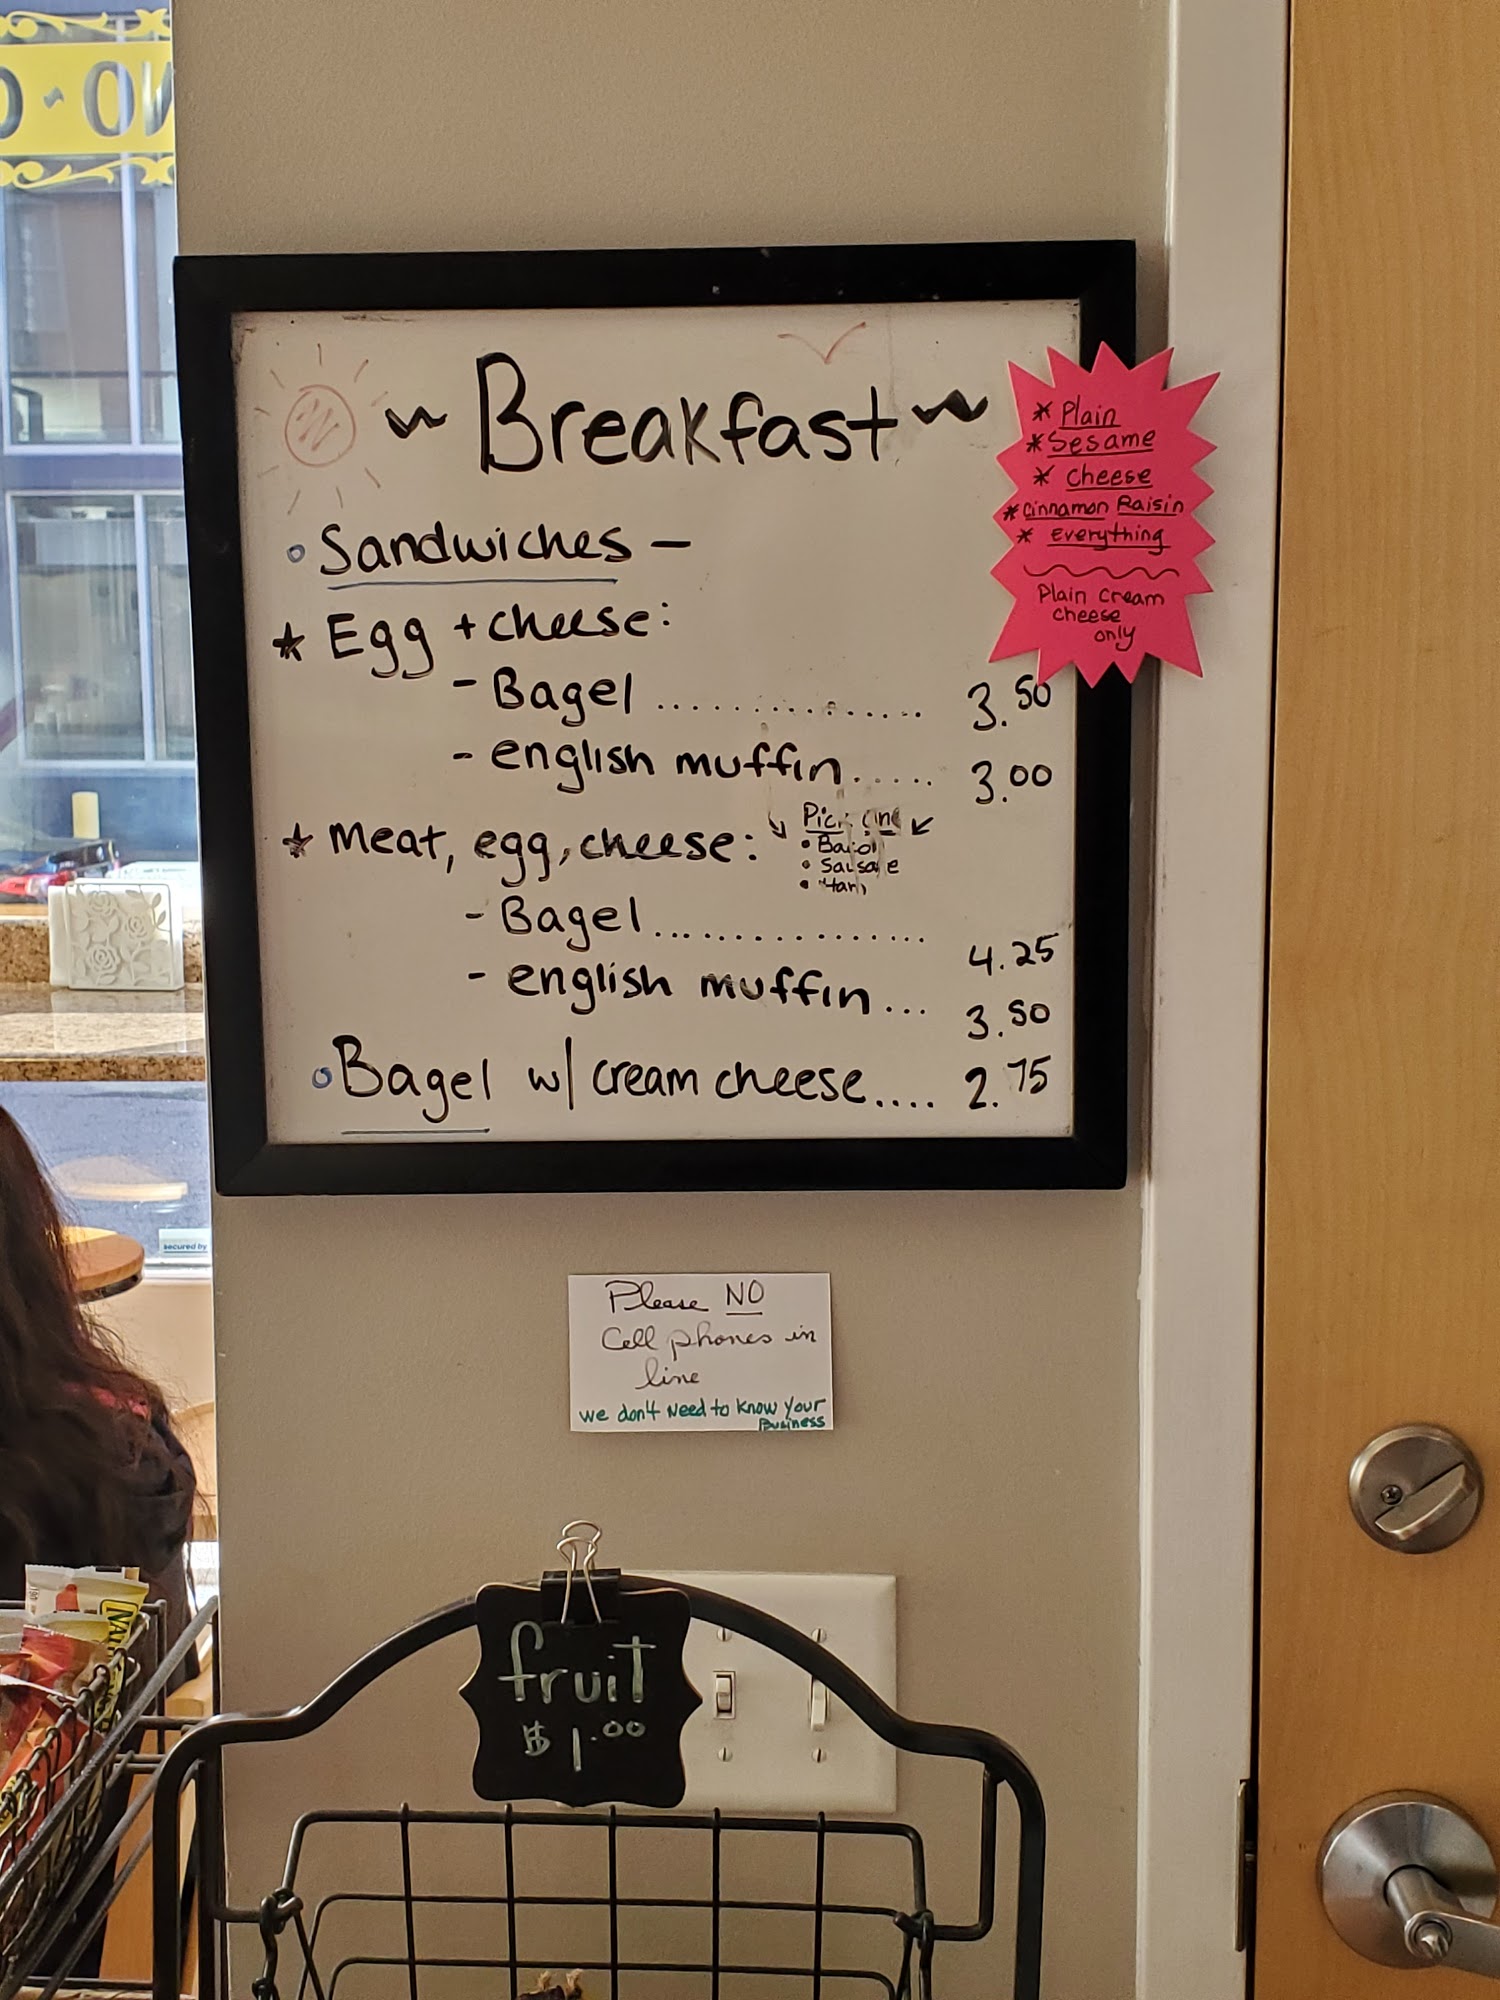 ~ Breakfast ~
Sandwiches -
Egg + cheese:
- Bagel .............. 3.50
- english muffin..... 3.00
Meat, egg, cheese:
Pick one
• Bacon
• Sausage
• Ham
- Bagel................ 4.25
- english muffin... 3.50
Bagel w/ cream cheese.... 2.75
* Plain
* Sesame
* cheese
* Cinnamon Raisin
* Everything
Plain cream
cheese
only
Please NO
Cell phones in
line
we don't Need to know your
Business
fruit
$1.00
secured by